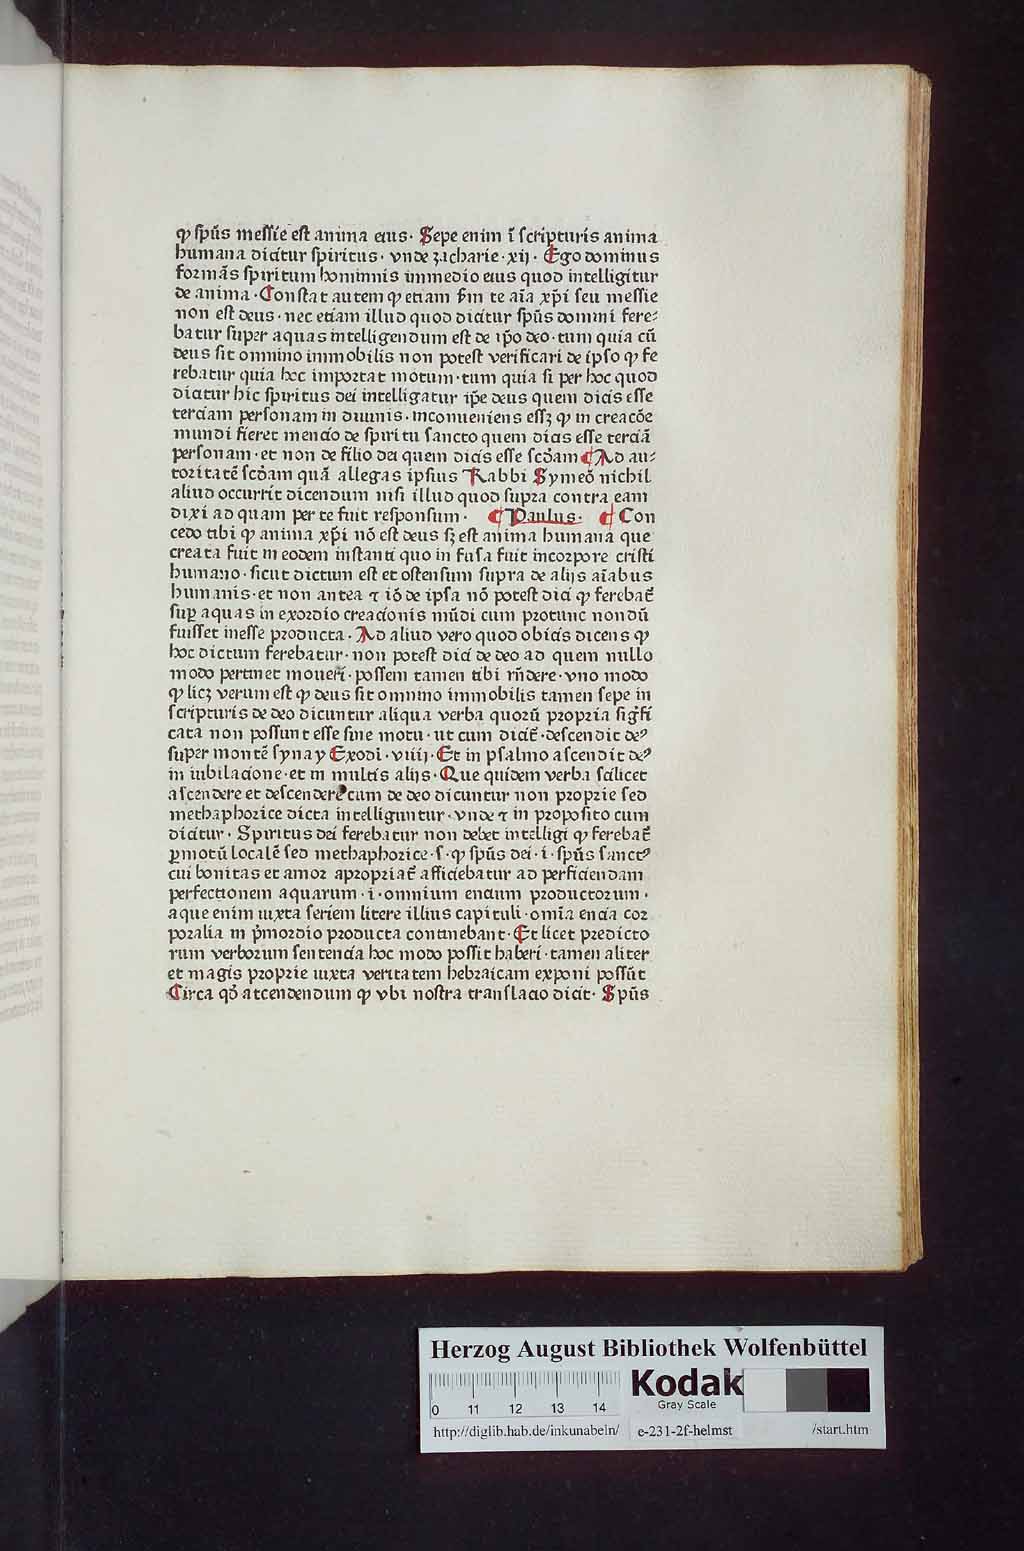 ꝙ spūs messie est anima eius· Sepe enim ī scripturis anima
humana dicitur spiritus · vnde zacharie · xij · Ego dominus
formās spiritum hominnis immedio eius quod intelligitur
de anima · Constat autem ꝙ etiam s̄m te aīa xp̄i seu messie
non est deus · nec etiam illud quod dicitur spūs domini fere⸗
batur super aquas intelligendum est de ip̄o deo · tum quia cū
deus sit omnino immobilis non potest verificari de ipso ꝙ fe
rebatur quia hoc importat motum · tum quia si per hoc quod
dicitur hic spiritus dei intelligatur ip̄e deus quem dicis esse
terciam personam in diuinis · inconueniens essꝫ ꝙ in creacōe
mundi fieret mencio de spiritu sancto quem dicis esse terciā
personam · et non de filio dei quem dicis esse scd̄am ¶ Ad au⸗
toritatē scd̄am quā allegas ipsius Rabbi Symeō nichil
aliud occurrit dicendum nisi illud quod supra contra eam
dixi ad quam per te fuit responsum · ¶ Paulus · ¶ Con
cedo tibi ꝙ anima xp̄i nō est deus sꝫ est anima humana que
creata fuit in eodem instanti quo in fusa fuit incorpore cristi
humano · sicut dictum est et ostensum supra de alijs aīabus
humanis · et non antea ⁊ iō de ipsa nō potest dici ꝙ ferebat̄
suꝑ aquas in exordio creacionis mūdi cum protunc nondū
fuisset inesse producta · Ad aliud vero quod obicis dicens ꝙ
hoc dictum ferebatur · non potest dici de deo ad quem nullo
modo pertinet moueri · possem tamen tibi rn̄dere · vno modo
ꝙ licꝫ verum est ꝙ deus sit omnino immobilis tamen sepe in
scripturis de deo dicuntur aliqua verba quorū propria siḡfi
cata non possunt esse sine motu · ut cum dicit̄ · descendit deꝰ
super montē synay Exodi · viiij · Et in psalmo ascendit deꝰ
in iubilacione · et in multis alijs · Que quidem verba scilicet
ascendere et descendere cum de deo dicuntur non proprie sed
methaphorice dicta intelliguntur · vnde ⁊ in proposito cum
dicitur · Spiritus dei ferebatur non debet intelligi ꝙ ferebat̄
ꝑmotū localē sed methaphorice · s · ꝙ spūs dei · i · spūs sanctꝰ
cui bonitas et amor apropriat̄ afficiebatur ad perficiendam
perfectionem aquarum · i · omnium encium productorum ·
aque enim iuxta seriem litere illius capituli · omīa encia cor
poralia in p̄mordio producta continebant · Et licet predicto
rum verborum sentencia hoc modo possit haberi · tamen aliter
et magis proprie iuxta veritatem hebraicam exponi possūt
Circa qd̄ attendendum ꝙ vbi nostra translacio dicit · Spūs
Herzog August Bibliothek Wolfenbüttel
0 11 12 13 14
Kodak
Gray Scale
http://diglib.hab.de/inkunabeln/ e-231-2f-helmst /start.htm